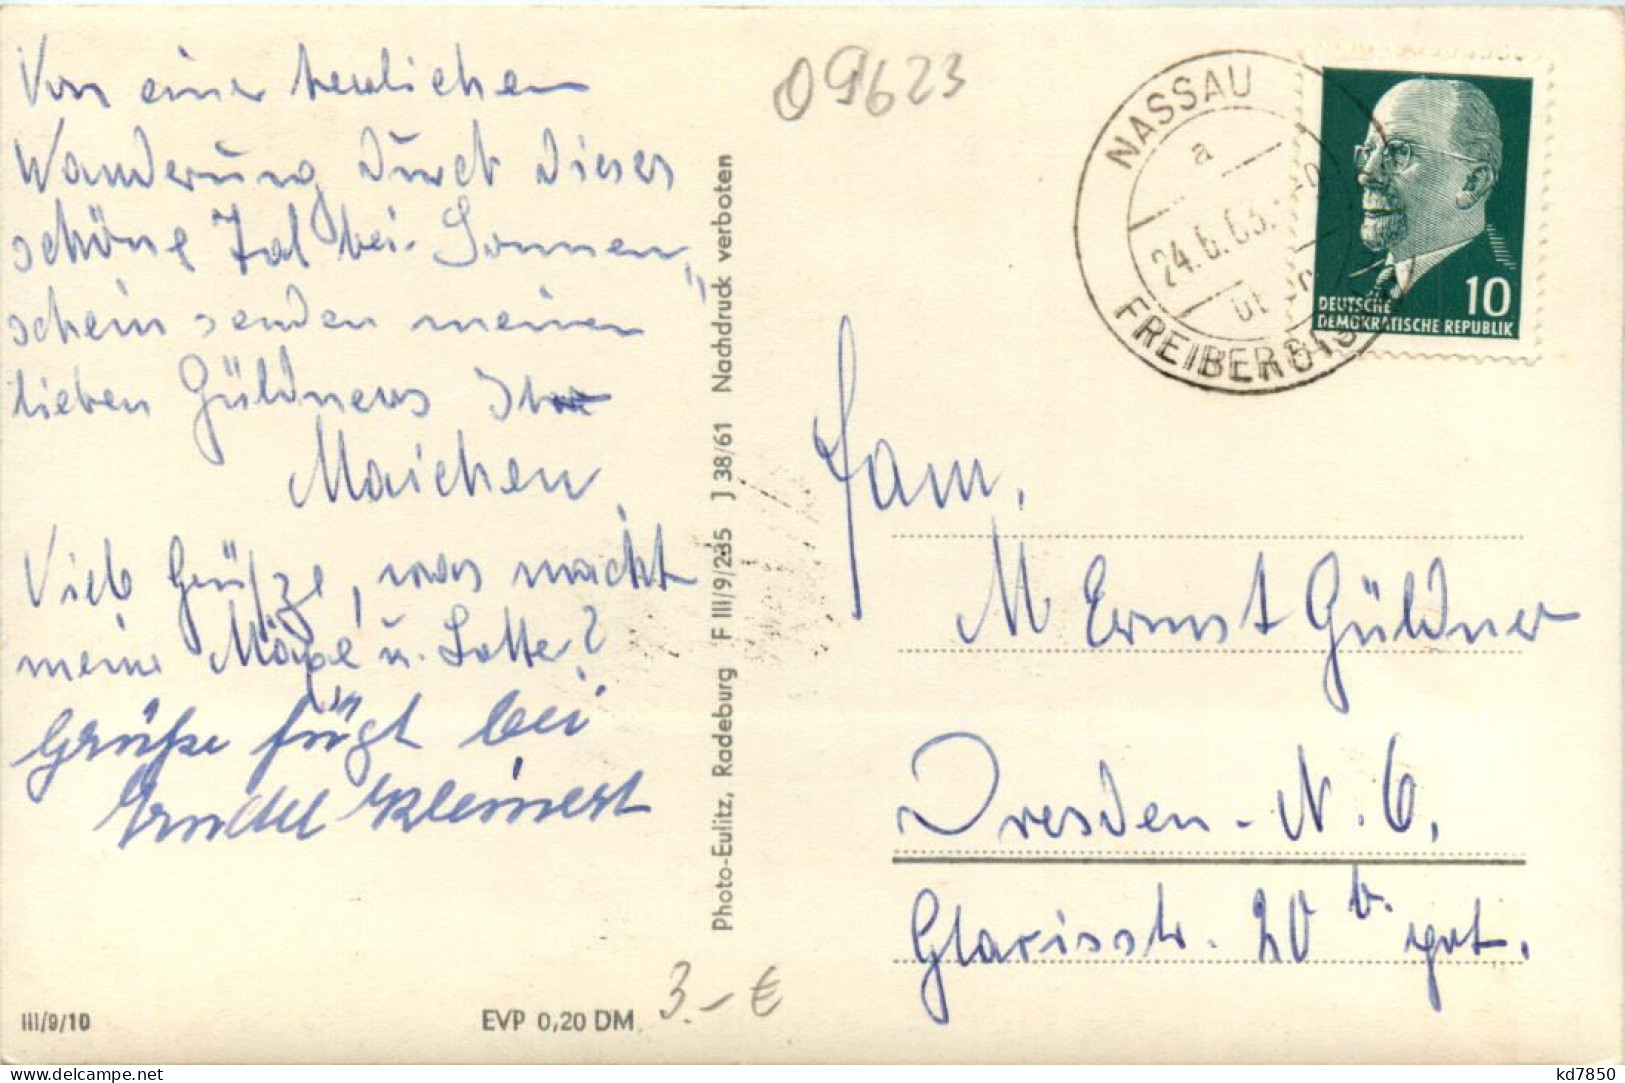 Von einer herrlichen
Wanderung durch dieses
schöne Tal bei Sonnen„
schein senden meinen
lieben Güldners Ihr
Maichen
Viele Grüße, was macht
meine Möpe u. Lotte?
Grüße fügt bei
Kleinert
III/9/10
EVP 0,20 DM
3.-€
Photo-Eulitz, Radeburg F III/9/235 J 38/61 Nachdruck verboten
09623
NASSAU
a
24.6.63.
FREIBERG
DEUTSCHE
DEMOKRATISCHE REPUBLIK
10
Fam.
M Ernst Güldner
Dresden-N. 6.
Glacisstr. 20 b.
kd7850